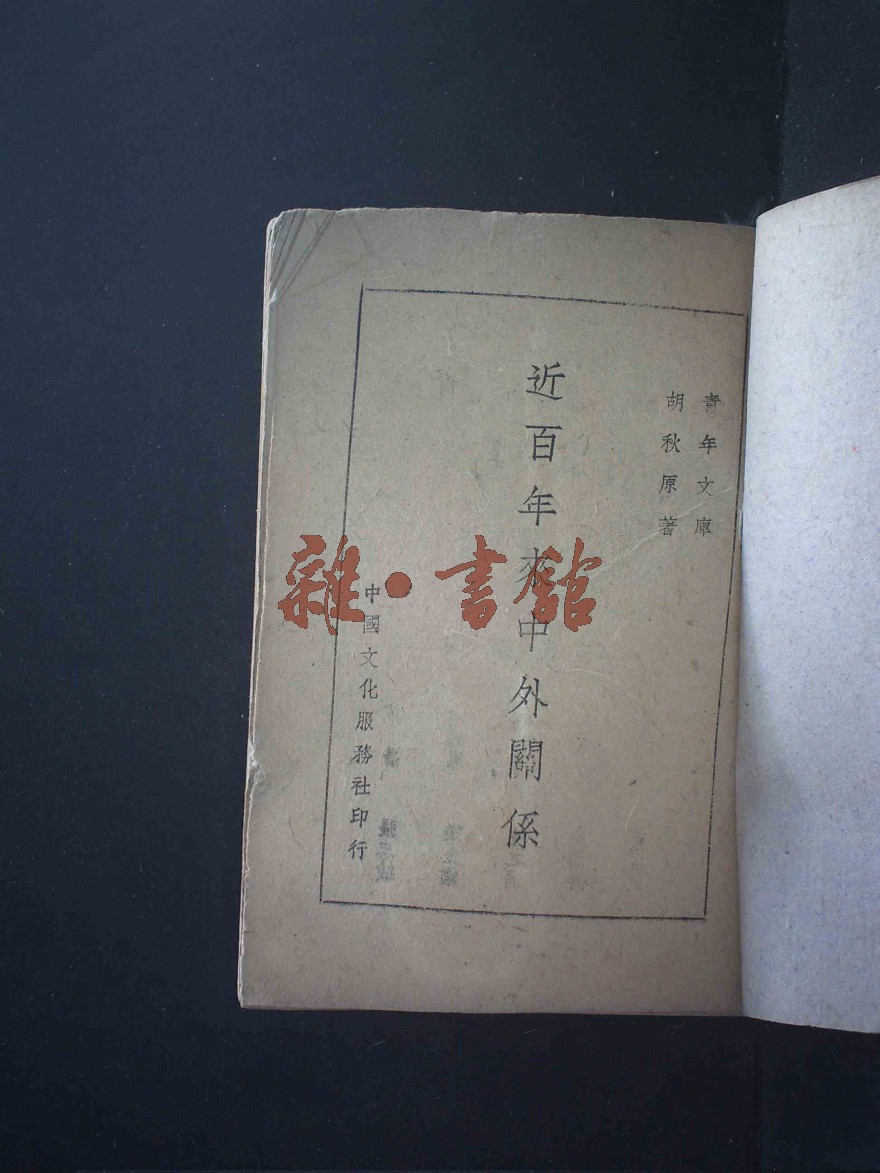 青年文庫
胡秋原著
近百年來中外關係
中國文化服務社印行
雜·書館